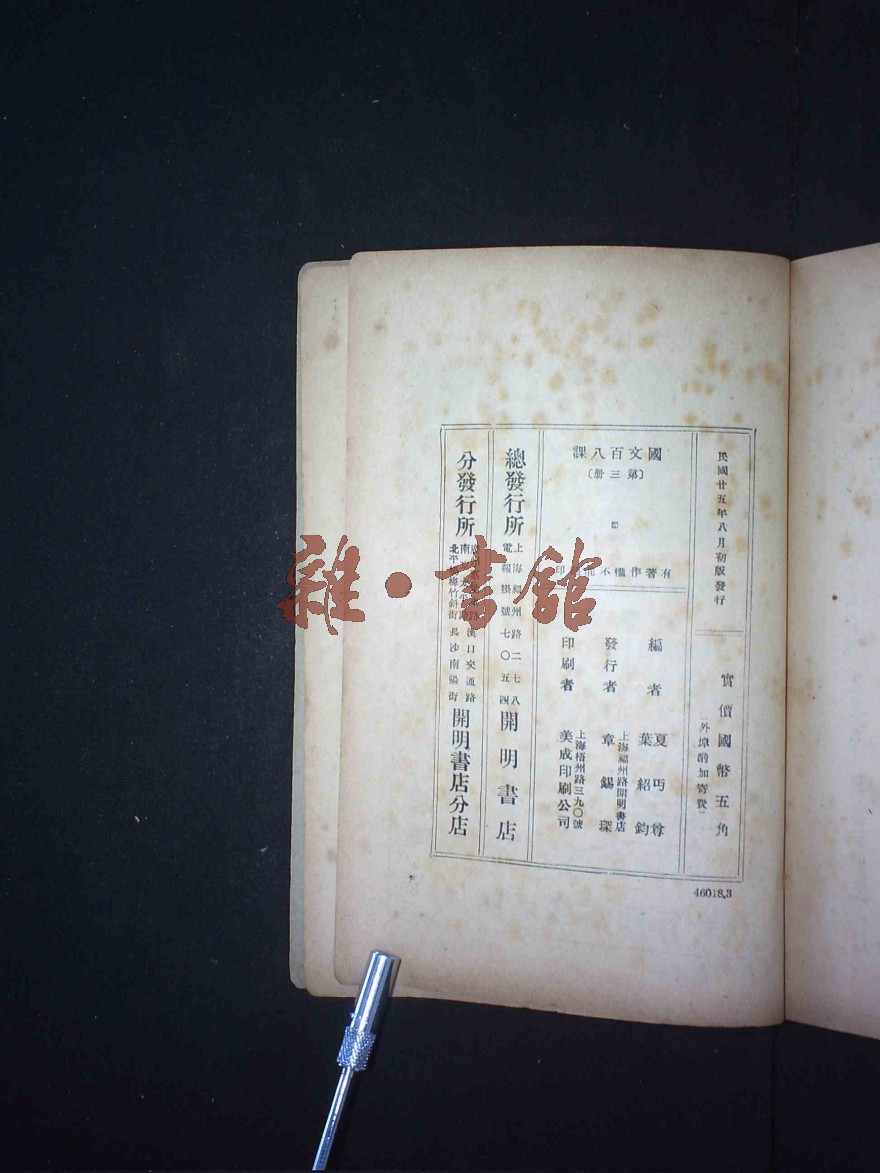 民國廿五年八月初版發行
實價國幣五角
（外埠酌加寄費）
國文百八課
〔第三册〕
有著作權不 印
編者
夏丏尊
葉紹鈞
發行者
上海福州路開明書店
章錫琛
印刷者
上海梧州路三九〇號
美成印刷公司
總發行所
上海福州路二七八
電報掛號七〇五四
開明書店
分發行所
南 路漢口交通路
北平 梅竹斜街長沙南陽街
開明書店分店
46018.3
雜·書館